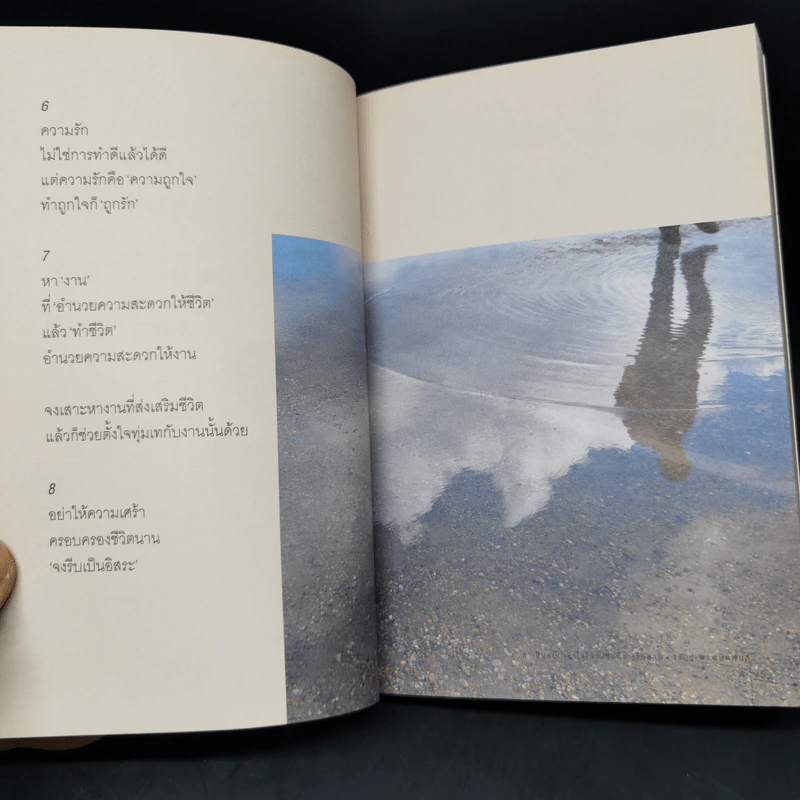 6
ความรัก
ไม่ใช่การทำดีแล้วได้ดี
แต่ความรักคือ ‘ความถูกใจ’
ทำถูกใจก็ ‘ถูกรัก’
7
หา ‘งาน’
ที่ ‘อำนวยความสะดวกให้ชีวิต’
แล้ว ‘ทำชีวิต’
อำนวยความสะดวกให้งาน
จงเสาะหางานที่ส่งเสริมชีวิต
แล้วก็ช่วยตั้งใจทุ่มเทกับงานนั้นด้วย
8
อย่าให้ความเศร้า
ครอบครองชีวิตนาน
‘จงรีบเป็นอิสระ’